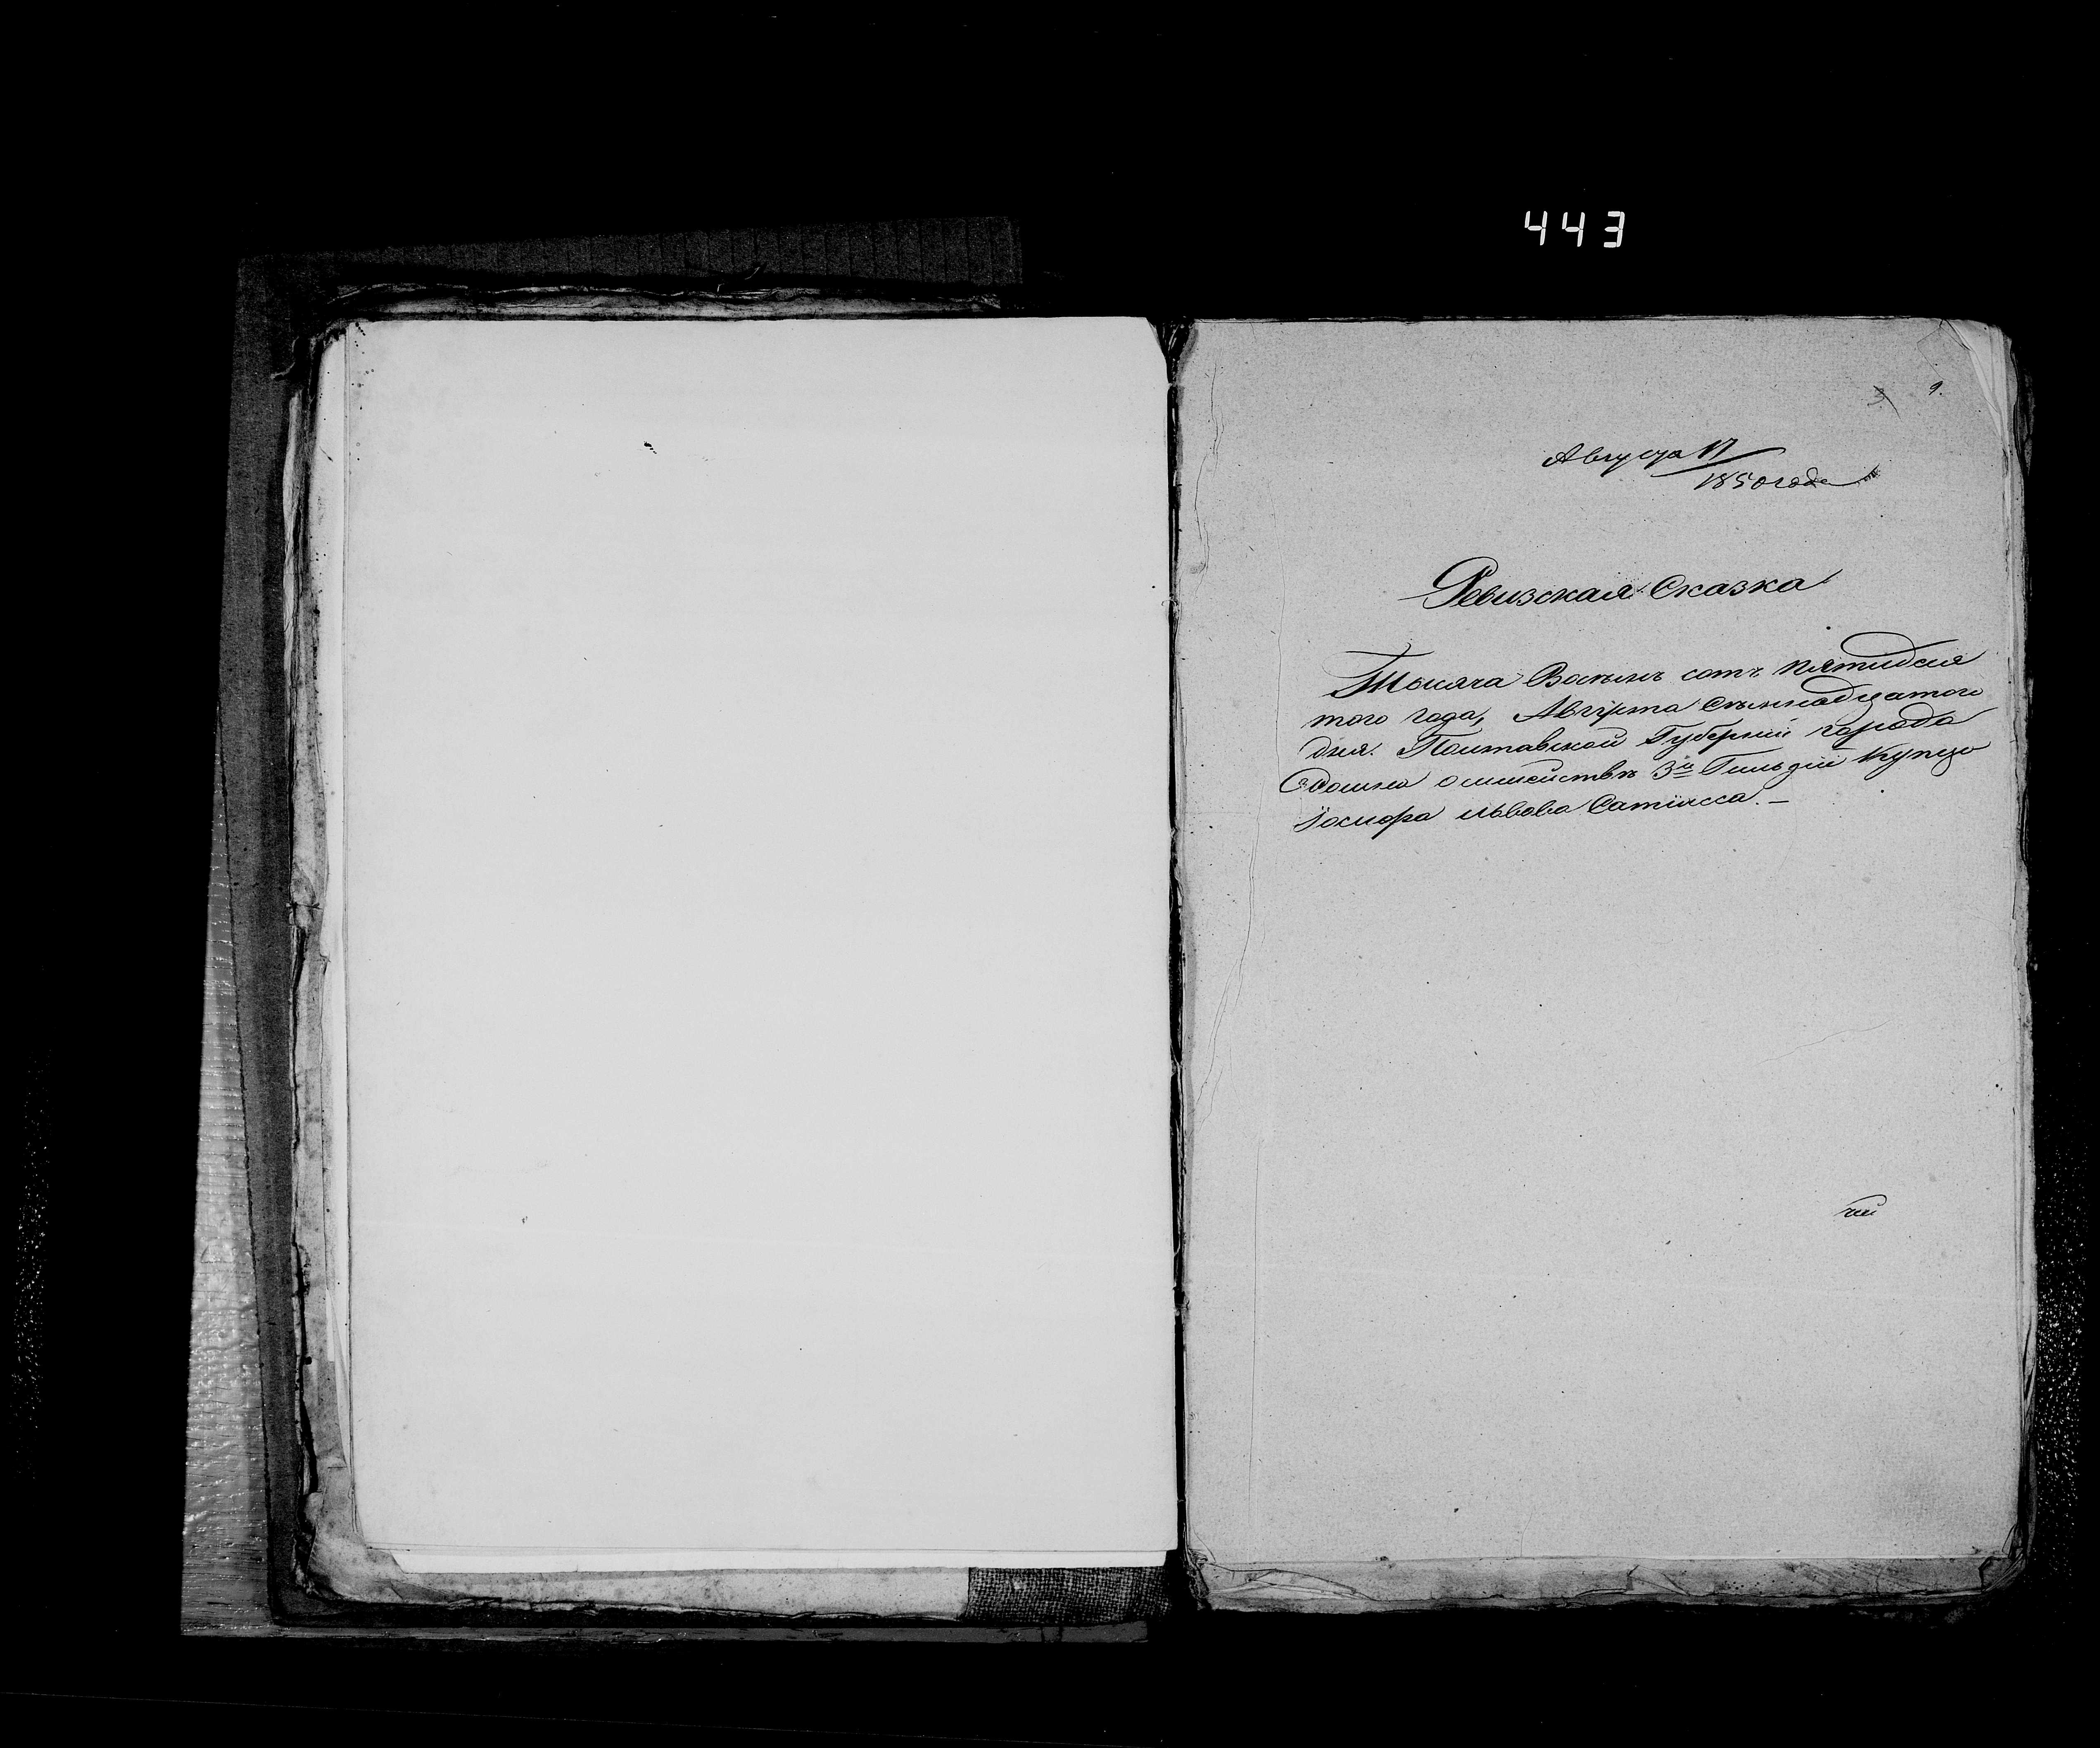 443
9.
Августа 17
1850 года
Ревизская Сказка
Тысяча Восемь сотъ пятидеся
того года, Августа Семнадцатого
дня. Полтавской Губерніи города
о семействѣ 3й Гильдіи Купца
Іосифа Львова